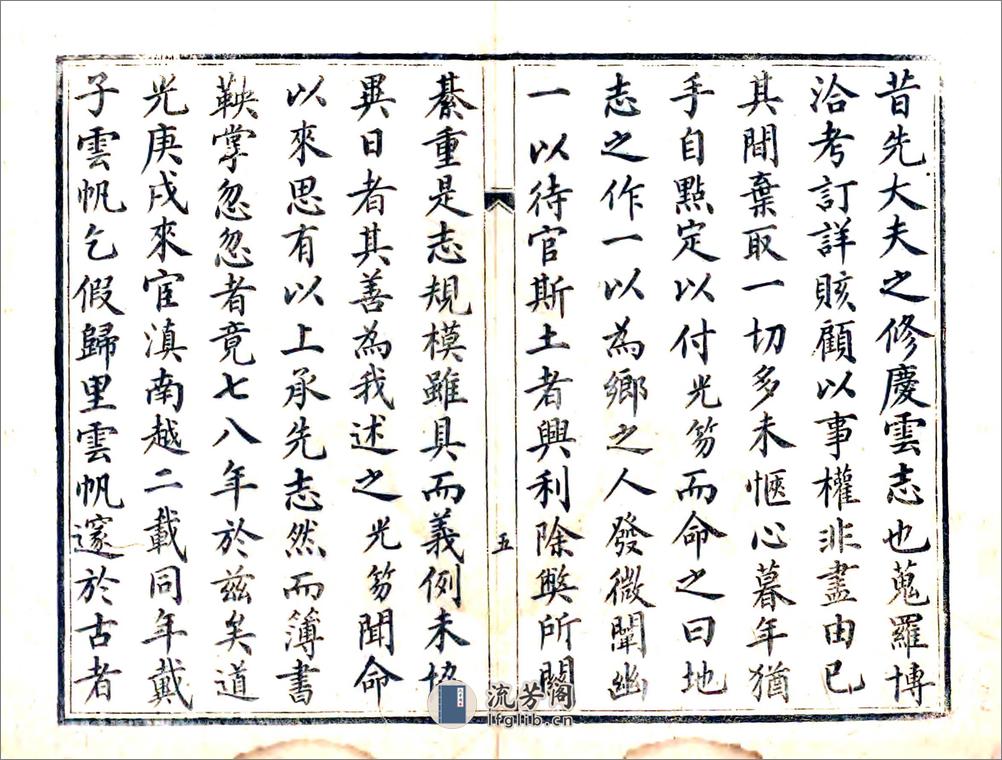 昔先大夫之修慶雲志也蒐羅博
洽考訂詳賅顧以事權非盡由已
其間棄取一切多未愜心暮年猶
手自點定以付光笏而命之曰地
志之作一以為鄉之人發微闡幽
一以待官斯土者興利除獘所關
五
綦重是志規模雖具而義例未協
異日者其善為我述之光笏聞命
以來思有以上承先志然而簿書
鞅掌忽忽者竟七八年於茲矣道
光庚戌來宦滇南越二載同年戴
子雲帆乞假歸里雲帆邃於古者
流芳閣
lfglib.cn